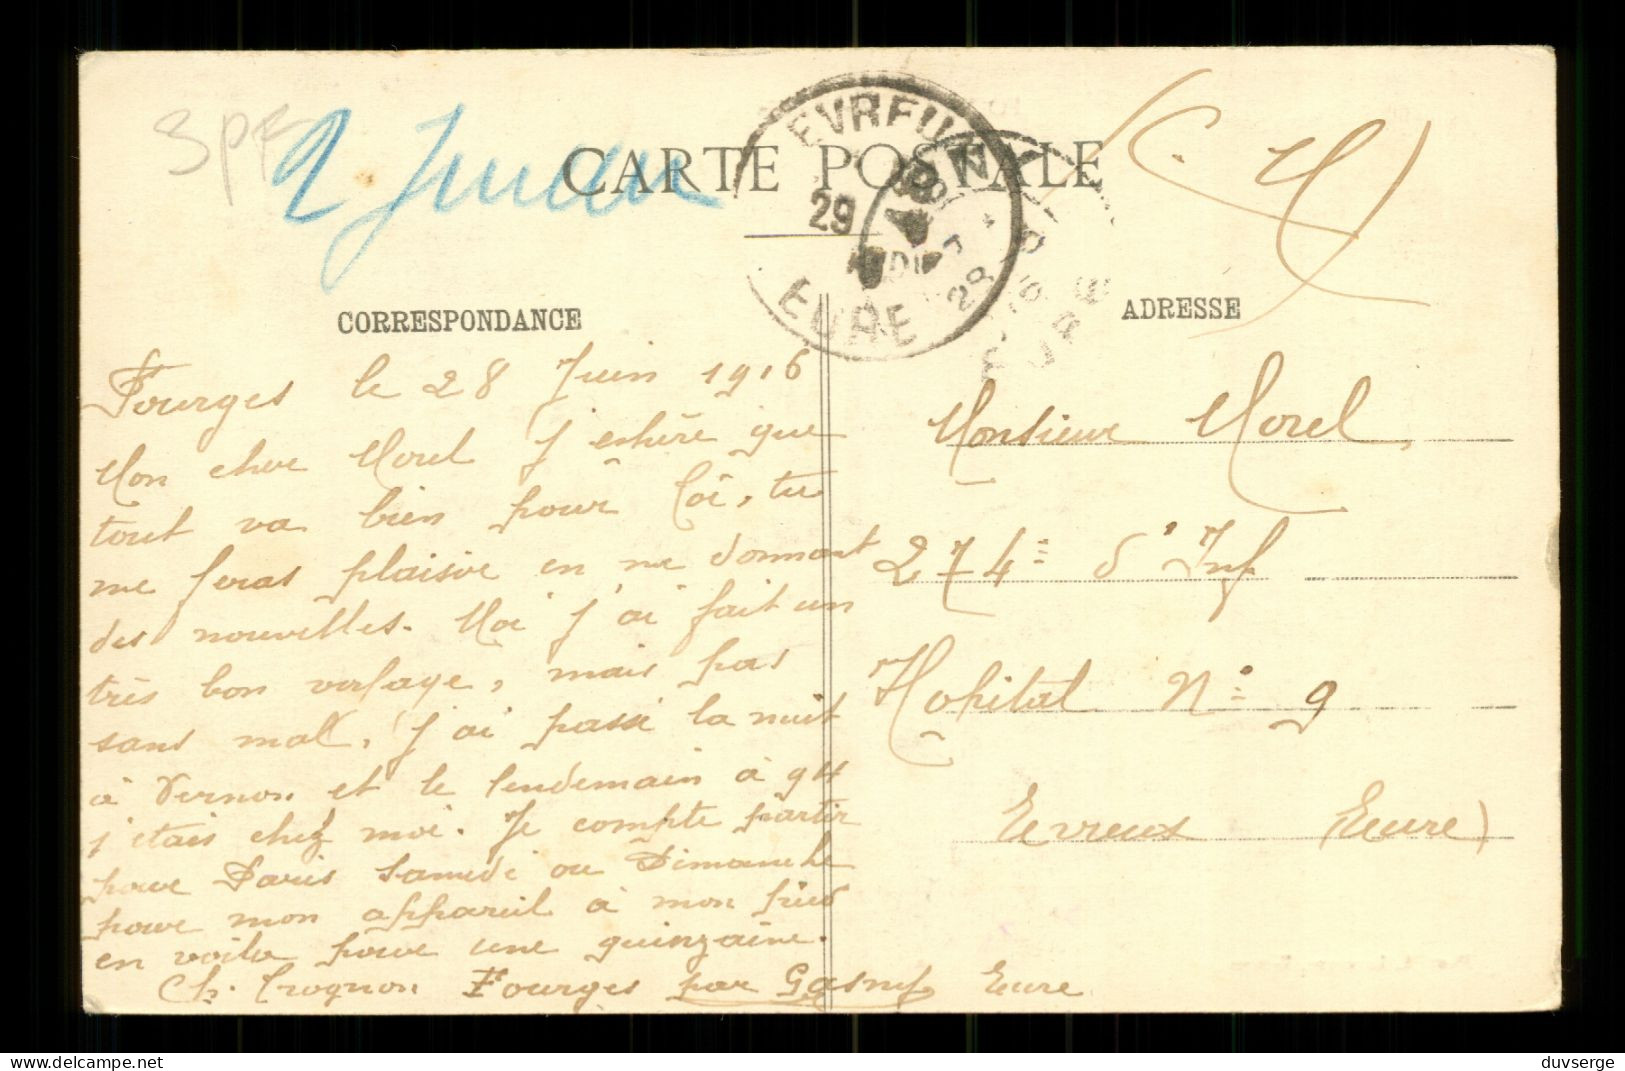 CARTE POSTALE
EVREUX
29
EURE
CORRESPONDANCE
ADRESSE
Fourges le 28 Juin 1916
Mon cher Morel j'espère que
tout va bien pour toi, tu
me feras plaisir en me donnant
des nouvelles. Moi j'ai fait un
très bon voyage, mais pas
sans mal, j'ai passé la nuit
à Vernon et le lendemain à 9H
j'etais chez moi. Je compte partir
pour Paris samedi ou Dimanche
pour mon appareil à mon pied
en voila pour une quinzaine.
Ch. Crognon Fourges par Gasny Eure
Monsieur Morel
274e d'Inf
Hopital No 9
Evreux Eure)
delcampe.net
duvserge